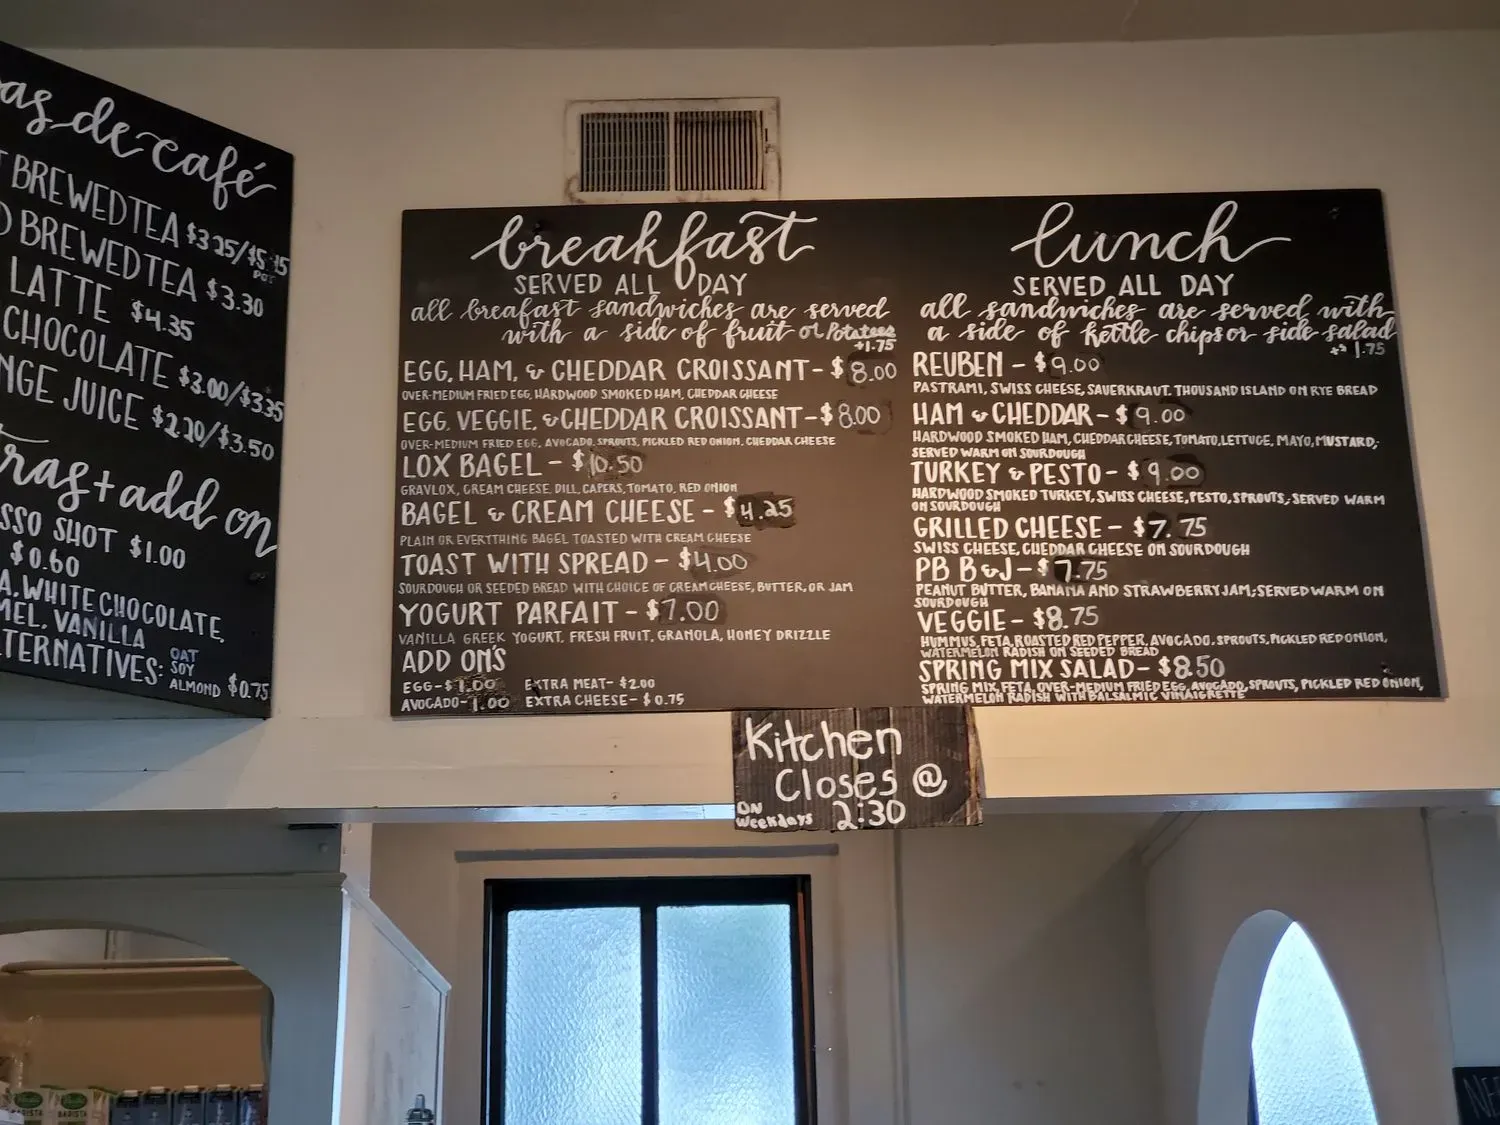 as de café
BREWED TEA $3.25/$5.15
POT
D BREWED TEA $3.30
LATTE $4.35
CHOCOLATE $3.00/$3.35
NGE JUICE $2.20/$3.50
tras + add on
SSO SHOT $1.00
$0.60
A, WHITE CHOCOLATE,
MEL, VANILLA
TERNATIVES: OAT
SOY
ALMOND $0.75
breakfast
SERVED ALL DAY
all breafast sandwiches are served
with a side of fruit or Potatoes
+1.75
EGG, HAM, & CHEDDAR CROISSANT - $8.00
OVER-MEDIUM FRIED EGG, HARDWOOD SMOKED HAM, CHEDDAR CHEESE
EGG, VEGGIE, & CHEDDAR CROISSANT - $8.00
OVER-MEDIUM FRIED EGG, AVOCADO, SPROUTS, PICKLED RED ONION, CHEDDAR CHEESE
LOX BAGEL - $10.50
GRAVLOX, CREAM CHEESE, DILL, CAPERS, TOMATO, RED ONION
BAGEL & CREAM CHEESE - $4.25
PLAIN OR EVERYTHING BAGEL TOASTED WITH CREAM CHEESE
TOAST WITH SPREAD - $4.00
SOURDOUGH OR SEEDED BREAD WITH CHOICE OF CREAM CHEESE, BUTTER, OR JAM
YOGURT PARFAIT - $7.00
VANILLA GREEK YOGURT, FRESH FRUIT, GRANOLA, HONEY DRIZZLE
ADD ON'S
EGG - $1.00 EXTRA MEAT - $2.00
AVOCADO - 1.00 EXTRA CHEESE - $0.75
lunch
SERVED ALL DAY
all sandwiches are served with
a side of kettle chips or side salad
+ 1.75
REUBEN - $9.00
PASTRAMI, SWISS CHEESE, SAUERKRAUT, THOUSAND ISLAND ON RYE BREAD
HAM & CHEDDAR - $9.00
HARDWOOD SMOKED HAM, CHEDDAR CHEESE, TOMATO, LETTUCE, MAYO, MUSTARD;
SERVED WARM ON SOURDOUGH
TURKEY & PESTO - $9.00
HARDWOOD SMOKED TURKEY, SWISS CHEESE, PESTO, SPROUTS; SERVED WARM
ON SOURDOUGH
GRILLED CHEESE - $7.75
SWISS CHEESE, CHEDDAR CHEESE ON SOURDOUGH
PB B & J - $7.75
PEANUT BUTTER, BANANA AND STRAWBERRY JAM; SERVED WARM ON
SOURDOUGH
VEGGIE - $8.75
HUMMUS, FETA, ROASTED RED PEPPER, AVOCADO, SPROUTS, PICKLED RED ONION,
WATERMELON RADISH ON SEEDED BREAD
SPRING MIX SALAD - $8.50
SPRING MIX, FETA, OVER-MEDIUM FRIED EGG, AVOCADO, SPROUTS, PICKLED RED ONION,
WATERMELON RADISH WITH BALSALMIC VINAIGRETTE
Kitchen
Closes @
ON
weekdays 2:30
BARISTA
BARISTA
NE